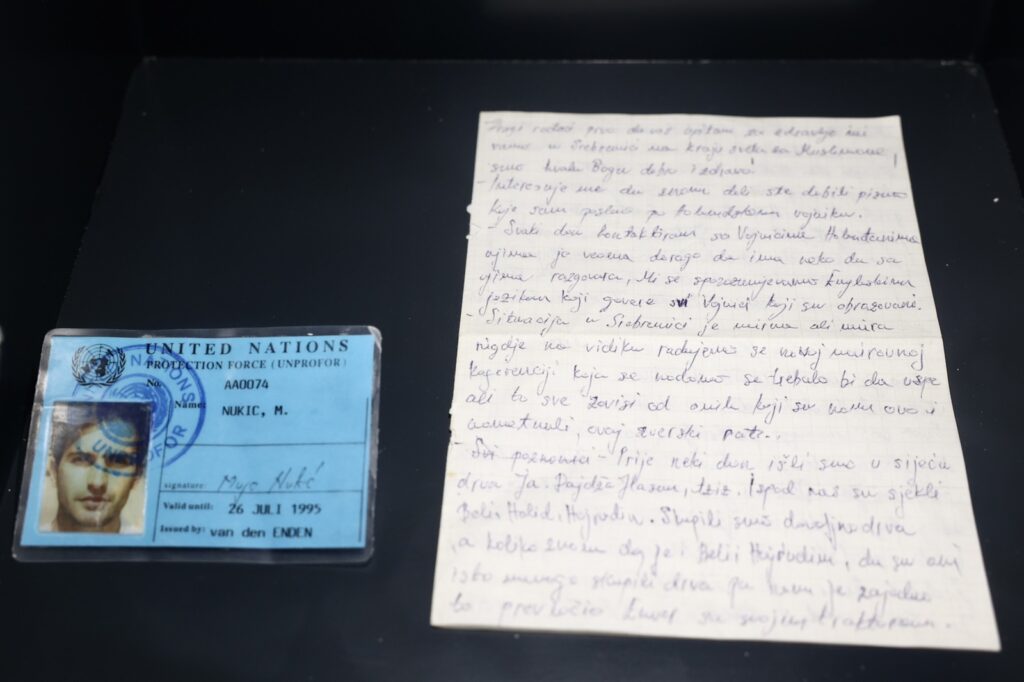 UNITED NATIONS
PROTECTION FORCE (UNPROFOR)
No. AA0074
Name: NUKIC, M.
signature: Mujo Nukić
Valid until: 26 JULI 1995
Issued by: van den ENDEN
UNITED NATIONS
UNPROFOR
prvo da vas upitam za zdravlje mi
vamo u Srebrenici na kraju sveta za Muslimane
smo hvala Bogu dobro i zdravo!
- Interesuje me da znam dali ste dobili pismo
koje sam poslao po holandskom vojniku.
- Svaki dan kontaktiram sa Vojnicima Holanđanima
njima je veoma drago da ima neko da sa
njima razgovara, Mi se sporazumjevamo Engleskim
jezikom koji govore svi Vojnici koji su obrazovani.
- Situacija u Srebrenici je mirna ali mira
nigdje na vidiku radujemo se mirovnoj
koja se nadamo se trebalo bi da uspe
ali to sve zavisi od onih koji su nama ovo i
nametnuli, ovaj zverski rat.
- Prije neki dan išli smo u sječu
drva Ja. Dajdža Hasan, Aziz. Ispod nas su sjekli
Halid, Hajrudin. Skupili smo dovoljno drva
a koliko znam da je i Hajrudin, da su oni
isto mnogo skupili drva pa nam je zajedno
to prevlačio sa svojim traktorom.